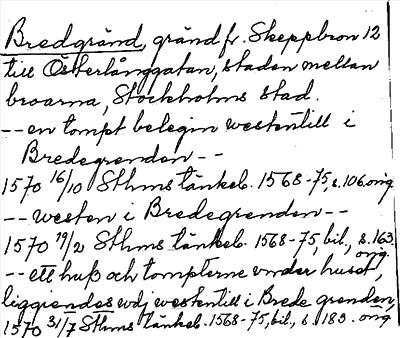 Bredgränd, gränd fr. Skeppbron 12
till Österlånggatan, staden mellan
broarna, Stockholms stad.
-- en tompt belegin westentill i
Bredegrenden --
1570 16/10 Sthms tänkeb. 1568-75, s. 106. orig
-- westen i Bredegrenden --
1570 19/2 Sthms tänkeb. 1568-75, bil., s. 163. orig.
-- ett huß och tompterne vnder huset,
liggiendes wdj westentill i Brede grenden,
1570 31/7 Sthms tänkeb. 1568-75, bil., s. 183. orig